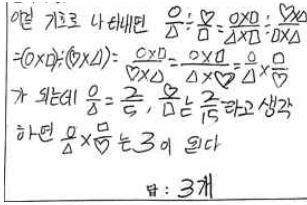 이걸 기호로 나타내면 ○/△ ÷ ♡/□ = ○×□/△×□ ÷ ♡×△/□×△
=(○×□)÷(♡×△)= ○×□/♡×△ = ○×□/△×♡ = ○/△ × □/♡
가 되는데 ○/△ = 2/5, ♡/□ 는 2/15 라고 생각
하면 ○/△ × □/♡ 는 3이 된다
답 : 3개